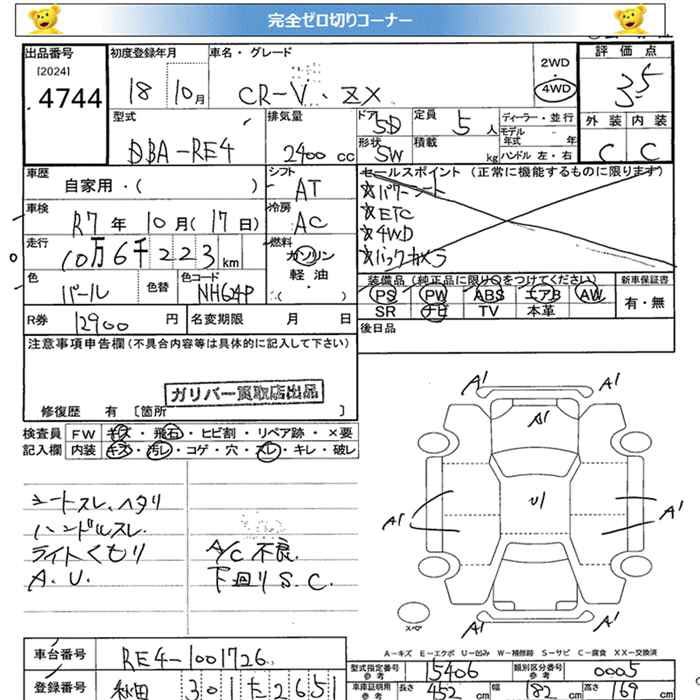 完全ゼロ切りコーナー
出品番号 初度登録年月 車名・グレード 2WD 評価点
[2024]
4744 18 10月 CR-V・ZX 4WD 3.5
型式 排気量 ドア 5D 定員 5人 ディーラー・並行 外装 内装
DBA-RE4 2400cc 形状 SW 積載 kg モデル年式 年 ハンドル 左・右 C C
車歴 自家用・( ) シフト AT セールスポイント (正常に機能するものに限ります)
☆パワーシート
車検 R7年10月(17日) 冷房 AC ☆ETC
☆4WD
走行 10万6千223km 燃料 ガソリン ☆バックカメラ
軽油
・( )
色 パール 色替 色コード NH624P 装備品 (純正品に限り○をつけてください) 新車保証書
PS PW ABS エアB AW 有・無
R券 12900円 名変期限 月 日 SR ナビ TV 本革
注意事項申告欄(不具合内容等は具体的に記入して下さい) 後日品
ガリバー買取店出品
修復歴 有 〔箇所 〕
検査員 FW キズ・飛石・ヒビ割・リペア跡・×要
記入欄 内装 キズ・汚レ・コゲ・穴・スレ・キレ・破レ
シートスレ、ヘタリ
ハンドルスレ.
ライトくもり A/C不良.
A.U. 下回りS.C.
A1
A1
U1
A1
A1
A1
スペア
A－キズ E－エクボ U－凹み W－補修跡 S－サビ C－腐食 XX－交換済
車台番号 RE4-1001726 型式指定番号 参考 15406 類別区分番号 参考 0005
登録番号 秋田 301 た 2651 車庫証明用 参考 長さ 452cm 幅 182cm 高さ 169cm